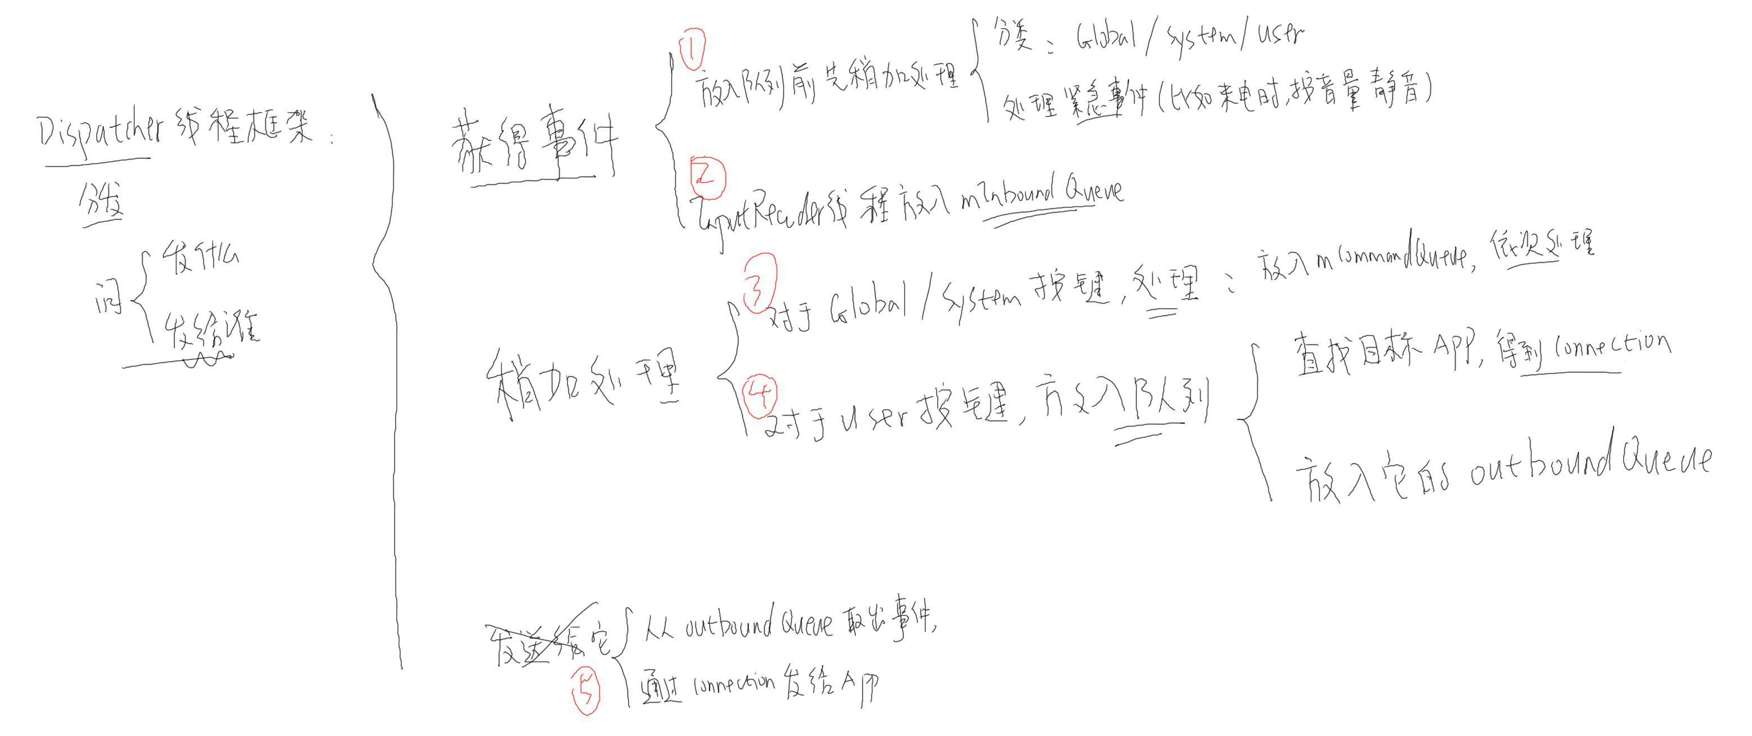 Dispatcher线程框架:
分发
问
发什么
发给谁
获得事件
①
放入队列前先稍加处理
分类: Global/system/user
处理紧急事件(比如来电时,按音量静音)
②
InputReader线程放入mInboundQueue
稍加处理
③
对于Global/System按键,处理:放入mCommandQueue,依次处理
④
对于user按键,放入队列
查找目标APP,得到connection
放入它的outboundQueue
发送给它
⑤
从outboundQueue取出事件,
通过connection发给APP